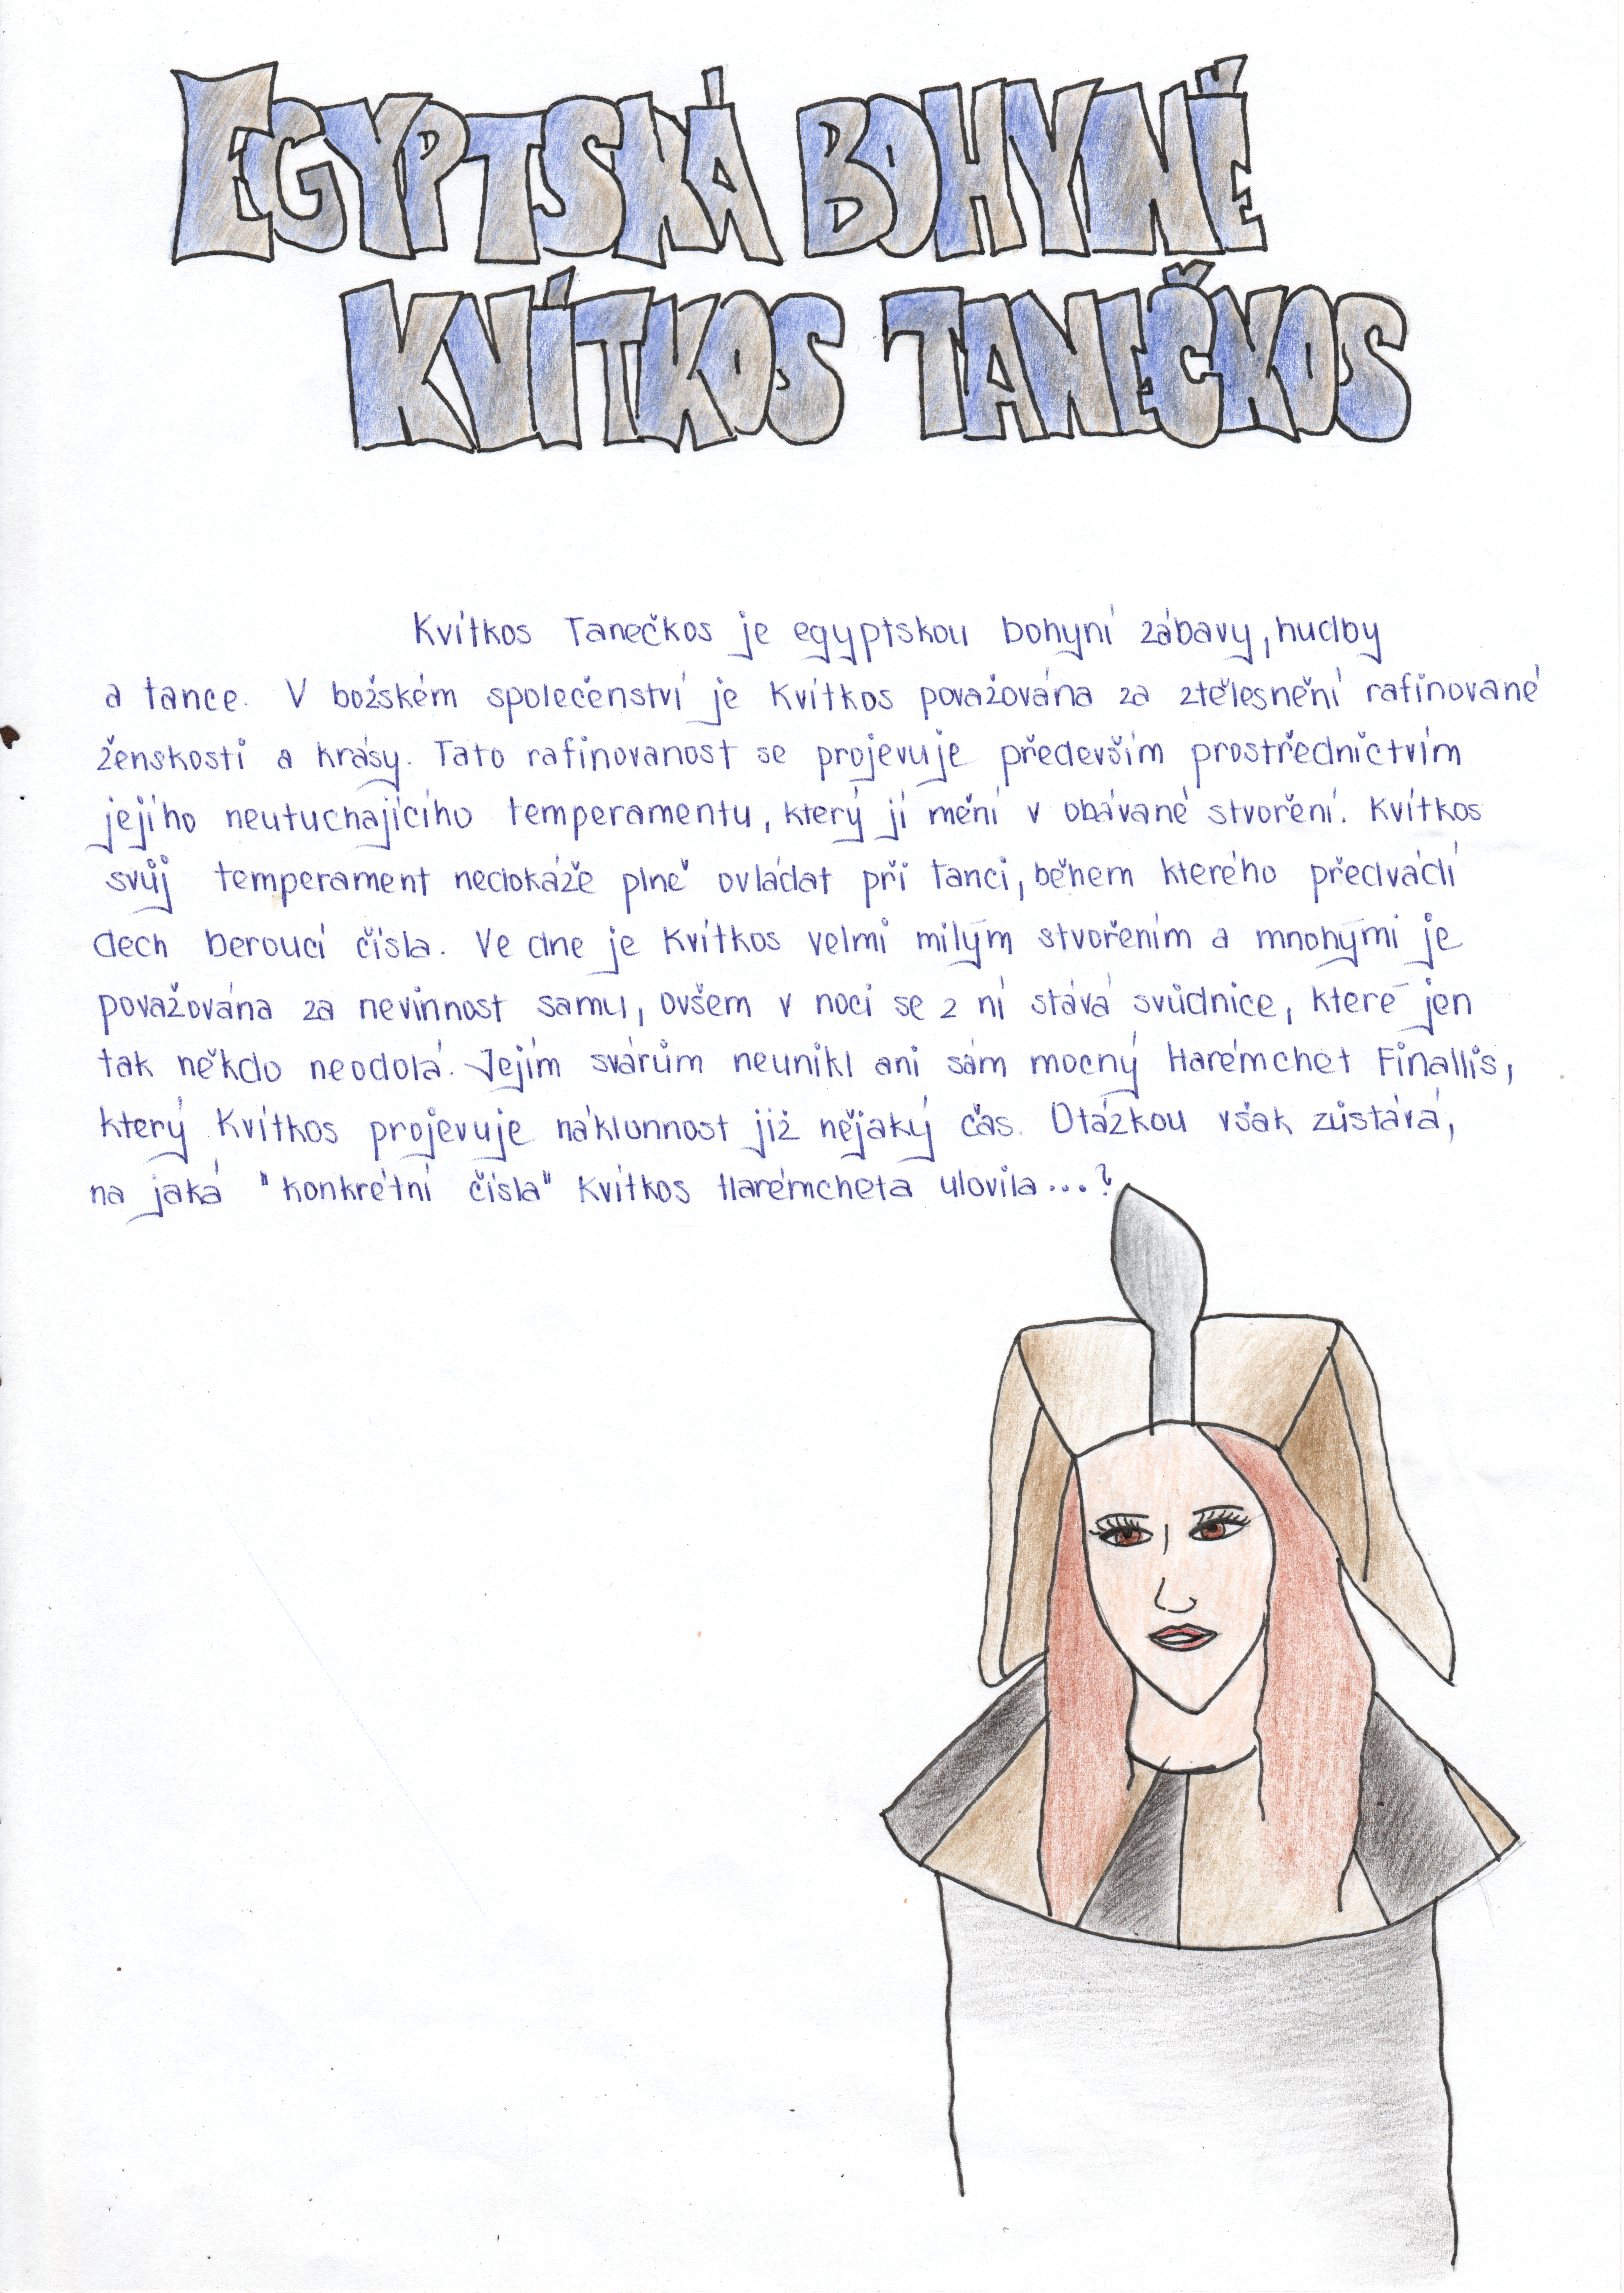 EGYPTSKÁ BOHYNĚ
KVÍTKOS TANEČKOS
Kvítkos Tanečkos je egyptskou bohyní zábavy, hudby
a tance. V božském společenství je Kvítkos považována za ztělesnění rafinované
ženskosti a krásy. Tato rafinovanost se projevuje především prostřednictvím
jejího neutuchajícího temperamentu, který jí mění v obávané stvoření. Kvítkos
svůj temperament nedokáže plně ovládat při tanci, během kterého předvádí
dech beroucí čísla. Ve dne je Kvítkos velmi milým stvořením a mnohými je
považována za nevinnost samu, ovšem v noci se z ní stává svůdnice, které jen
tak někdo neodolá. Jejím svárům neunikl ani sám mocný Harémchet Finallis,
který Kvítkos projevuje náklonnost již nějaký čas. Otázkou však zůstává,
na jaká "konkrétní čísla" Kvítkos Harémcheta ulovila...?